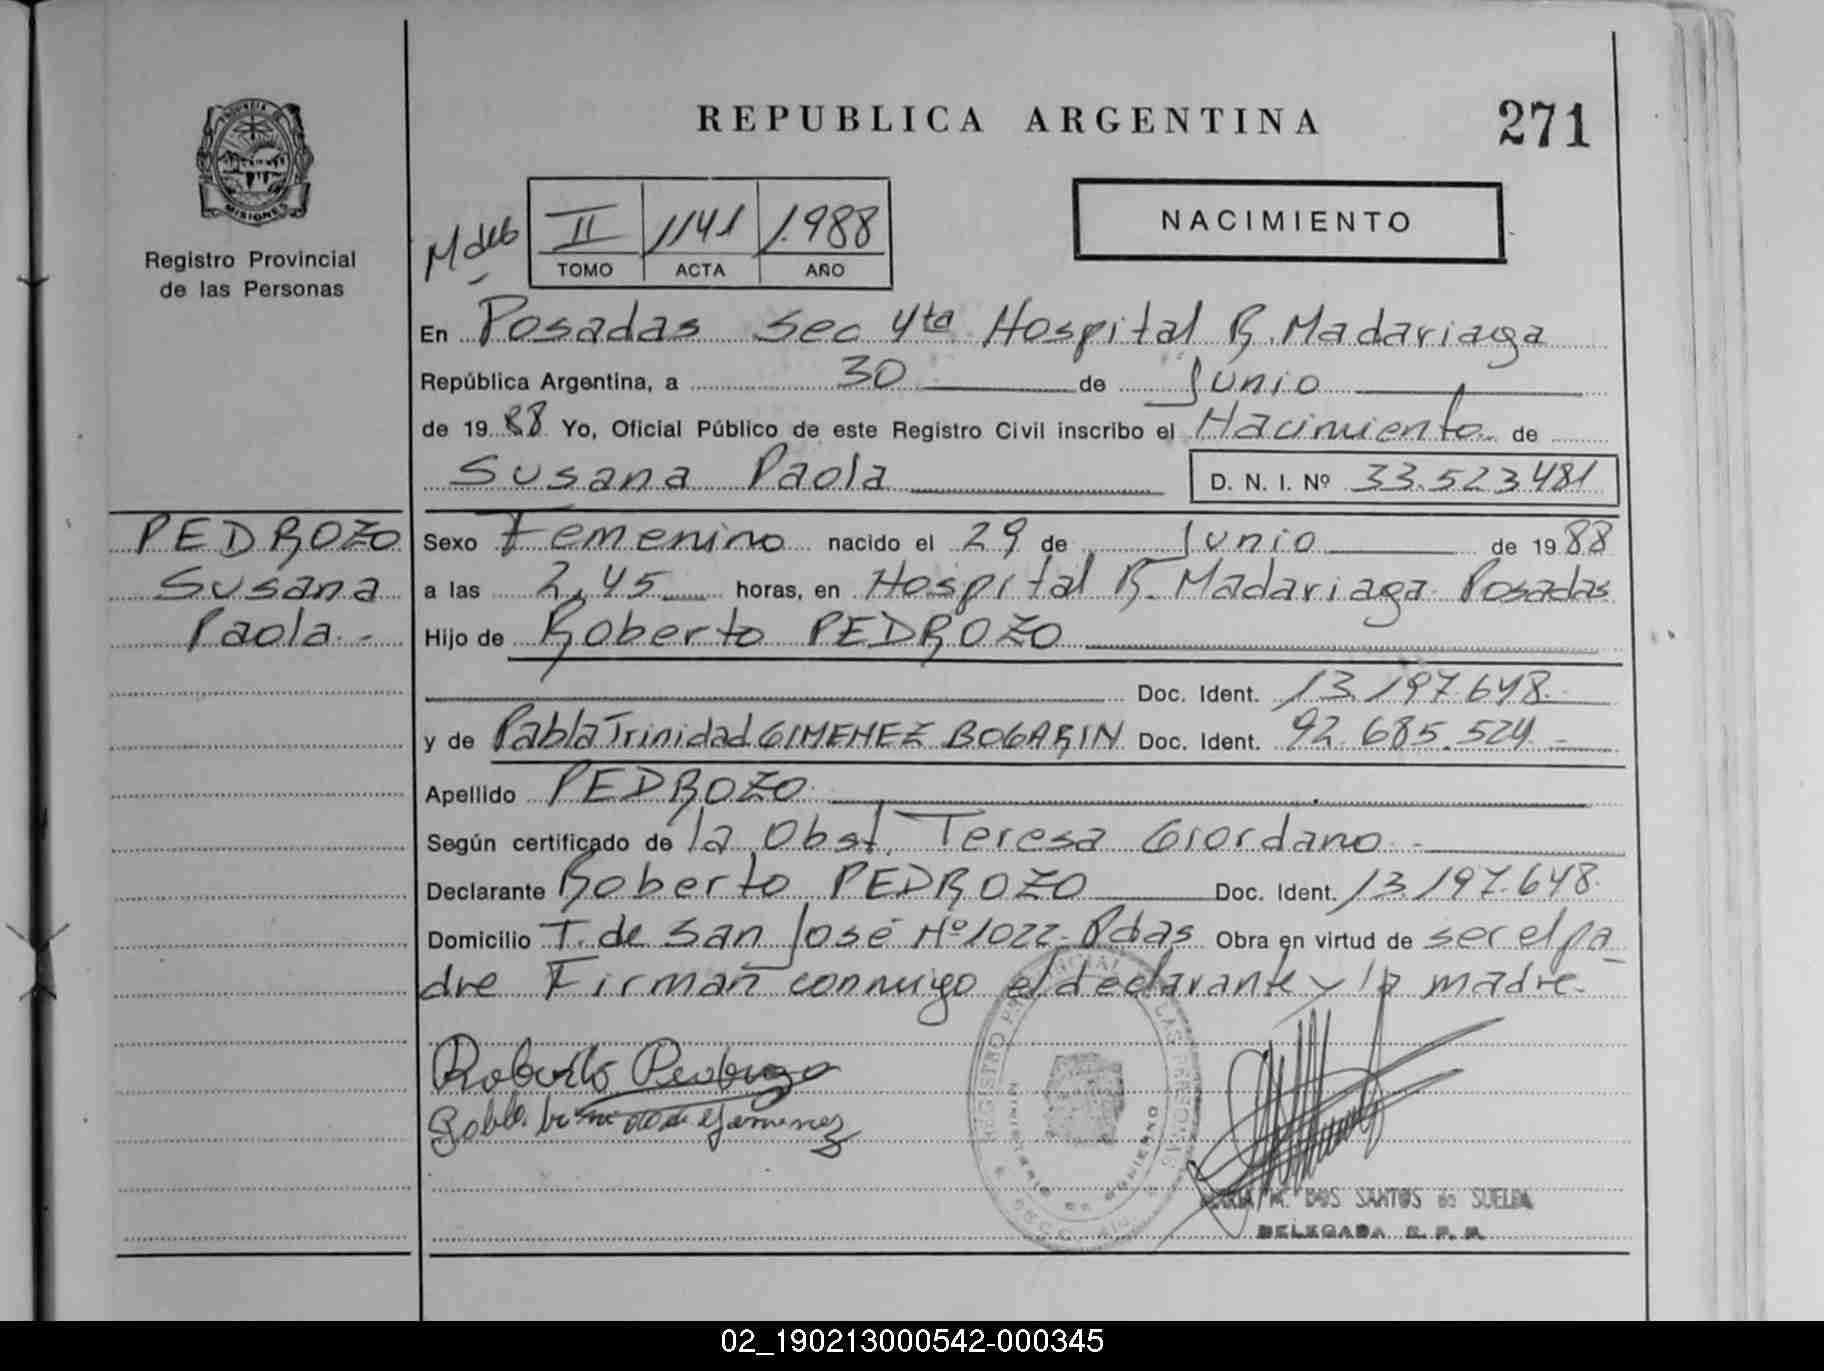 REPUBLICA ARGENTINA
271
PROVINCIA DE
MISIONES
Registro Provincial
de las Personas
NACIMIENTO
II 1141 1.988
TOMO ACTA AÑO
En Posadas Sec 4ta Hospital R. Madariaga
República Argentina, a 30 de Junio
de 1988 Yo, Oficial Público de este Registro Civil inscribo el Nacimiento de
Susana Paola D. N. I. Nº 33.523.481
PEDROZO
Susana
Paola.-
Sexo Femenino nacido el 29 de Junio de 1988
a las 2,45 horas, en Hospital R. Madariaga Posadas
Hijo de Roberto PEDROZO
Doc. Ident. 13.197.648.-
y de Pabla Trinidad GIMENEZ BOGARIN Doc. Ident. 92.685.524.-
Apellido PEDROZO
Según certificado de la Obst. Teresa Giordano.-
Declarante Roberto PEDROZO Doc. Ident. 13.197.648.
Domicilio T. de San José Nº 1022- Pdas Obra en virtud de ser el pa-
dre Firman conmigo el declarante y la madre-
Roberto Pedrozo
MARIA M. DOS SANTOS de SUELDA
DELEGADA R. P. P.
02_190213000542-000345